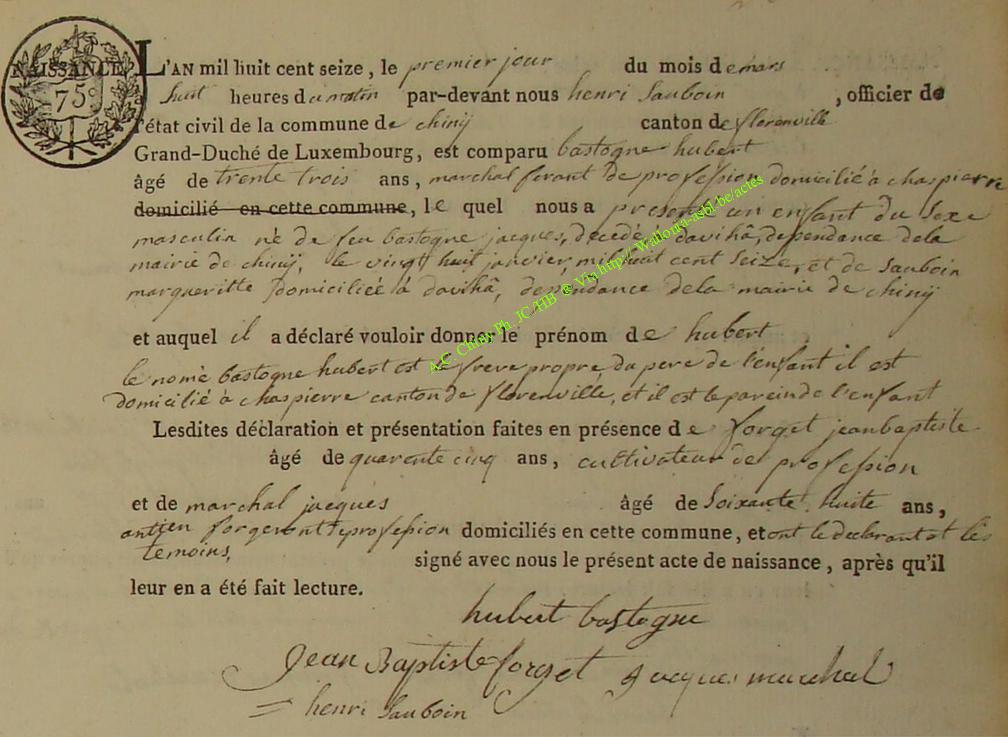 NAISSANCE
75c
L'AN mil huit cent seize, le premier jour du mois de mars
huit heures du matin par-devant nous henri Sauboin, officier de
l'état civil de la commune de chinÿ canton de florenville
Grand-Duché de Luxembourg, est comparu bastogne hubert
âgé de trente trois ans, marchal ferant de profession domicilié à chaspierre
domicilié en cette commune, le quel nous a presenté un enfant du Sexe
masculin né de feu bastogne jacques, décédé à davihâ, dependance dela
mairie de chinÿ, le vingt huit janvier, mil huit cent Seize, et de Sauboin
margueritte domiciliée à davihâ, dependance dela mairie de chinÿ
et auquel il a déclaré vouloir donner le prénom de hubert
le nomé bastogne hubert est le frere propre du pere de l'enfant il est
domicilié à chaspierre canton de florenville, et il est le parein de l'enfant
Lesdites déclaration et présentation faites en présence de forget jean baptiste
âgé de quarente cinq ans, cultivateur de profession
et de marchal jacques âgé de Soixante huite ans,
antien forgeront de profession domiciliés en cette commune, et ont le declarant et les
temoins, signé avec nous le présent acte de naissance, après qu'il
leur en a été fait lecture.
hubert bastogne
Jean Baptiste forget Jacques marchal
henri Sauboin
A.C. Chiny Ph. JC/HB @ Via http://Wallonia-asbl.be/actes